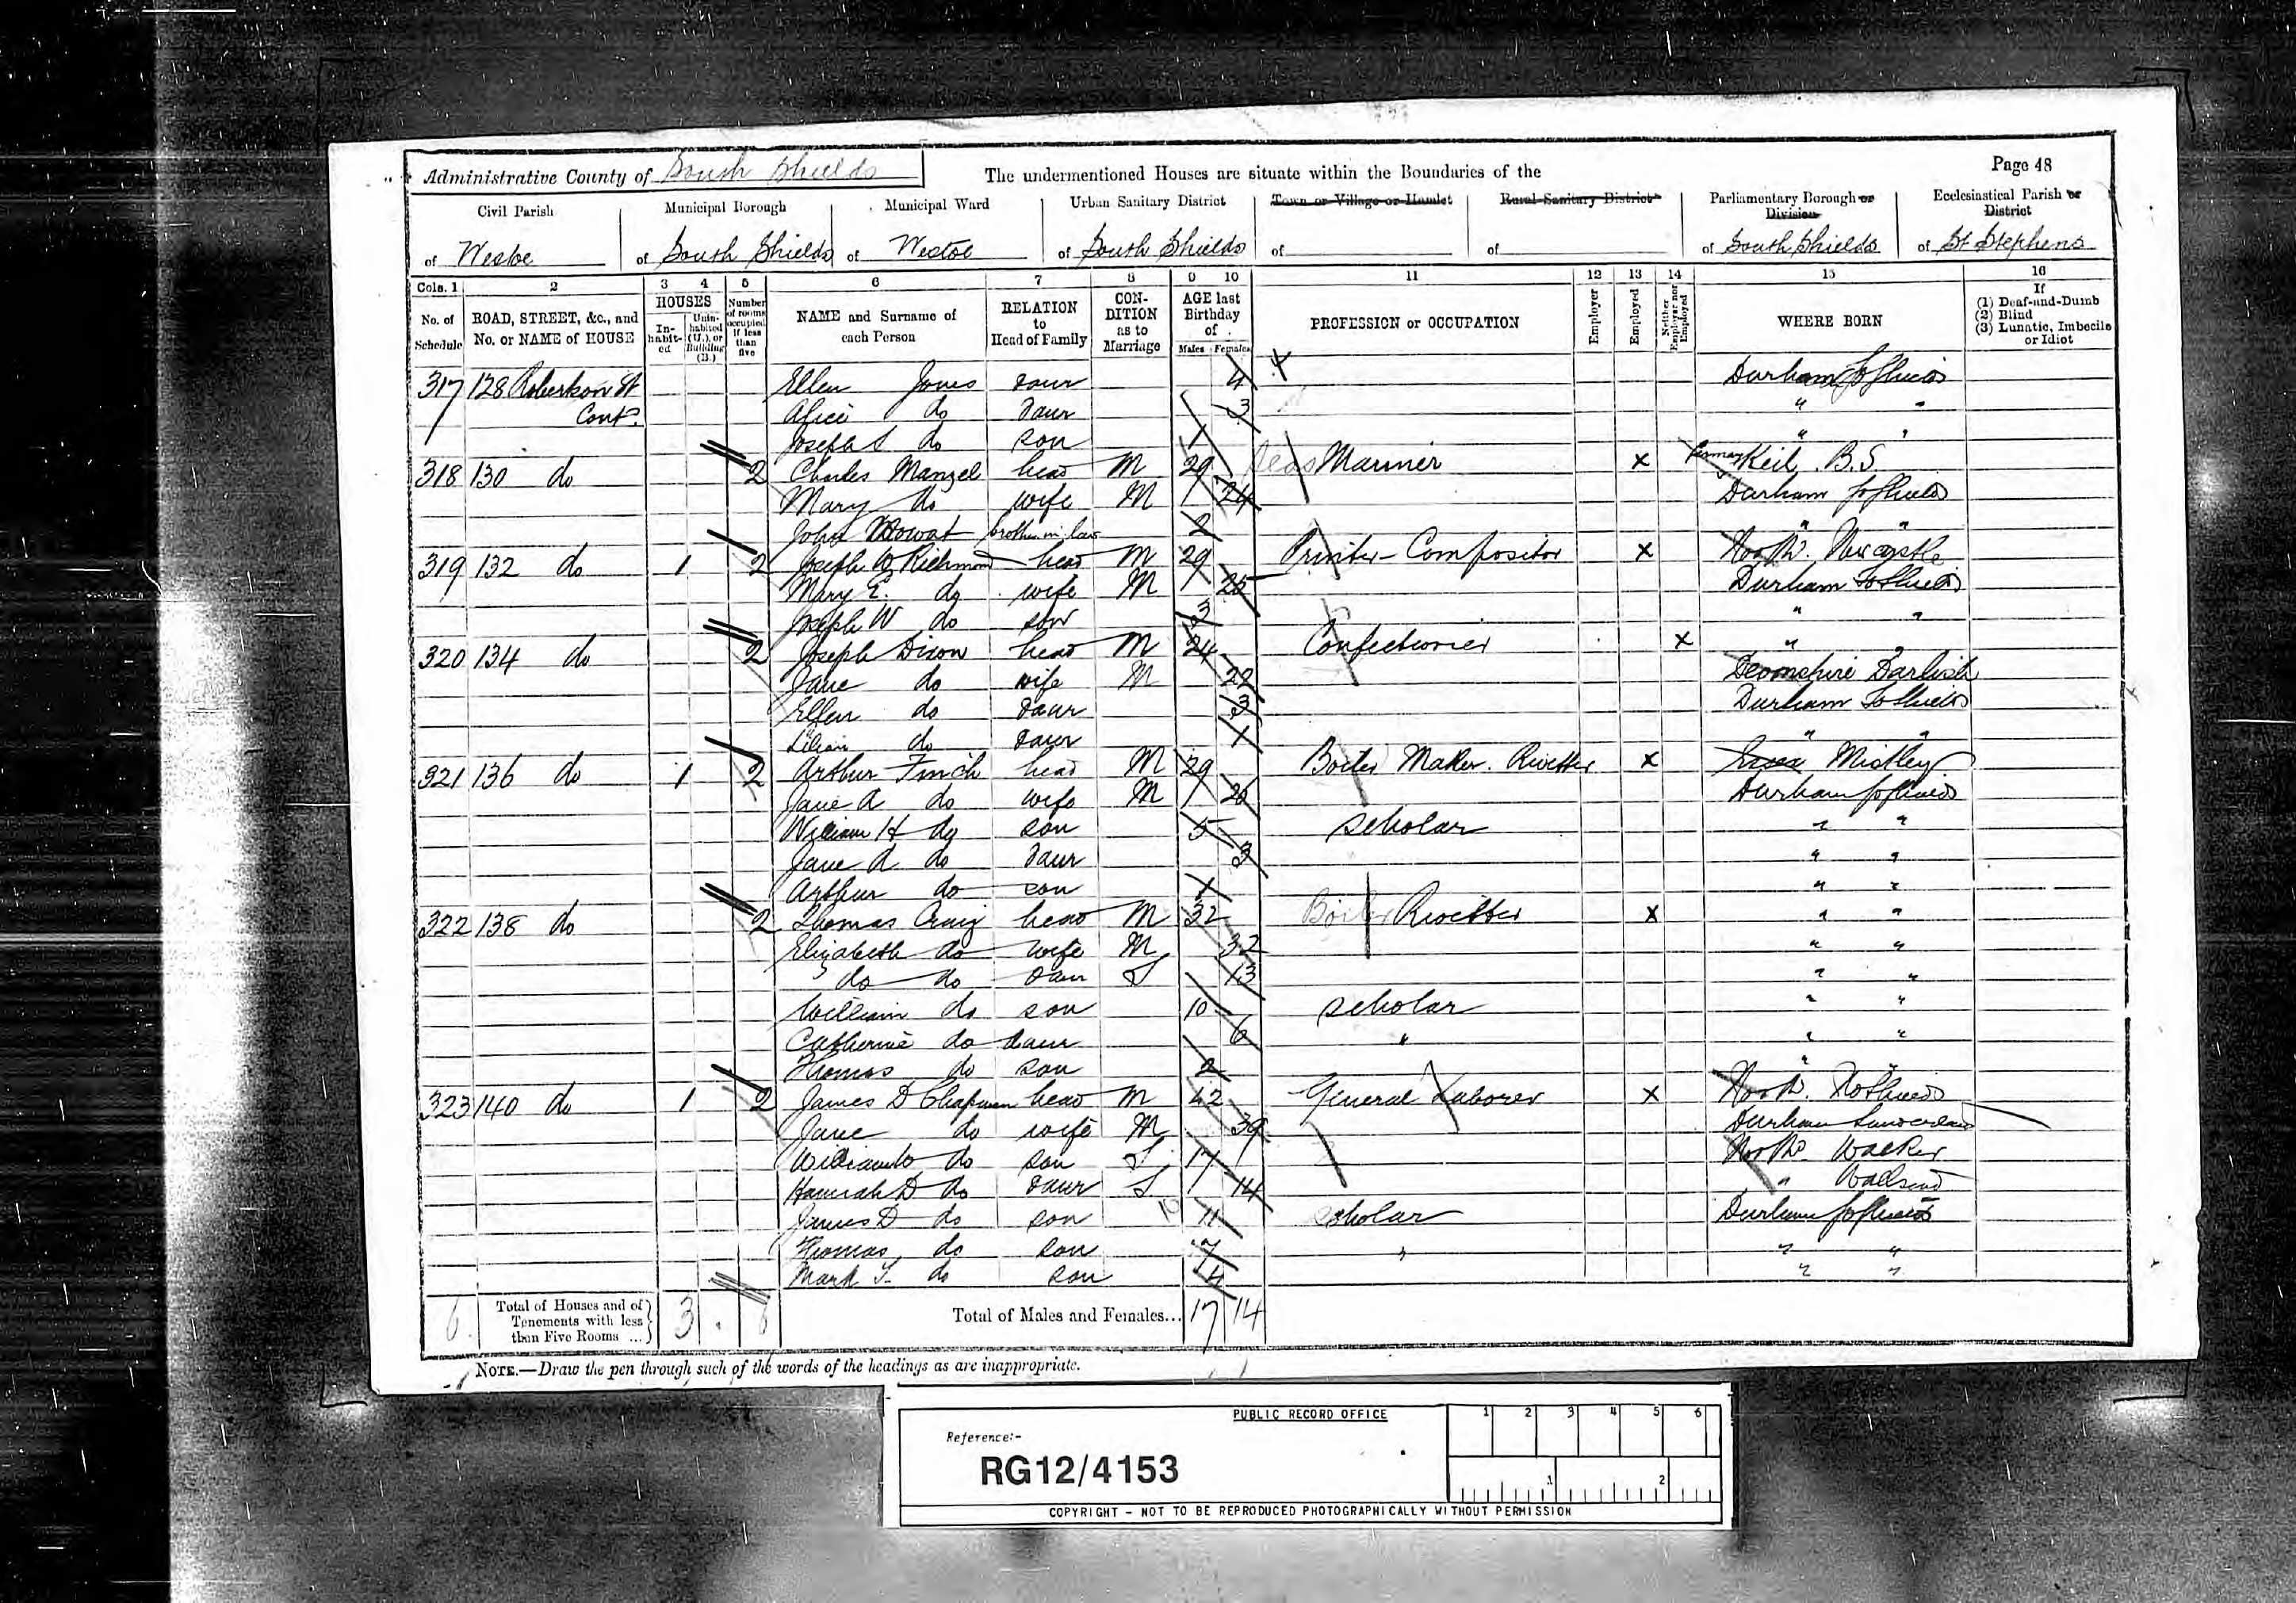 Page 48
Administrative County of South Shields
The undermentioned Houses are situate within the Boundaries of the
Civil Parish Municipal Borough Municipal Ward Urban Sanitary District Town or Village or Hamlet Rural Sanitary District Parliamentary Borough or Division Ecclesiastical Parish or District
of Westoe of South Shields of Westoe of South Shields of of of South Shields of St Stephens
Cols. 1 2 3 4 5 6 7 8 9 10 11 12 13 14 15 16
No. of Schedule ROAD, STREET, &c., and No. or NAME of HOUSE HOUSES In-habit-ed Unin-habited (U.), or Building (B.) Number of rooms occupied if less than five NAME and Surname of each Person RELATION to Head of Family CON-DITION as to Marriage AGE last Birthday of Males Females PROFESSION or OCCUPATION Employer Employed Neither Employer nor Employed WHERE BORN If (1) Deaf-and-Dumb (2) Blind (3) Lunatic, Imbecile or Idiot
317 128 Robertson St Ellen Jones daur 4 Durham So Shields
Cont. Alice do daur 3 " "
Joseph S do son 1 " "
318 130 do 2 Charles Manzel head M 29 Seas Mariner x Germany Keil B.S.
Mary do wife M 24 Durham So Shields
John Mowat brother in law 2 " "
319 132 do 1 2 Joseph W Richmond head M 29 Printer-Compositor x North. Newcastle
Mary E. do wife M 25 Durham So Shields
Joseph W do son 3 " "
320 134 do 2 Joseph Dixon head M 24 Confectioner x " "
Jane do wife M 22 Devonshire Darlish
Ellen do daur 3 Durham So Shields
Lilian do daur 1 " "
321 136 do 1 2 Arthur Finch head M 29 Boiler Maker. Rivetter x Essex Mistley
Jane A do wife M 26 Durham So Shields
William H do son 5 scholar " "
Jane A. do daur 3 " "
Arthur do son 1 " "
322 138 do 2 Thomas Craig head M 32 Boiler Rivetter x " "
Elizabeth do wife M 32 " "
do do daur S 13 " "
William do son 10 scholar " "
Catherine do daur 6 " " "
Thomas do son 2 " "
323 140 do 1 2 James D Chapman head M 42 General Laborer x North. No Shields
Jane do wife M 39 Durham Sunderland
William do son S 17 North. Walker
Hannah D do daur S 14 " Wallsend
James D do son 11 scholar Durham So Shields
Thomas do son 7 " " "
Mark T. do son 4 " "
6 Total of Houses and of Tenements with less than Five Rooms ... 3 . 6 Total of Males and Females... 17 14
NOTE.—Draw the pen through such of the words of the headings as are inappropriate.
PUBLIC RECORD OFFICE
1 2 3 4 5 6
Reference:-
RG12/4153
1 2
COPYRIGHT - NOT TO BE REPRODUCED PHOTOGRAPHICALLY WITHOUT PERMISSION